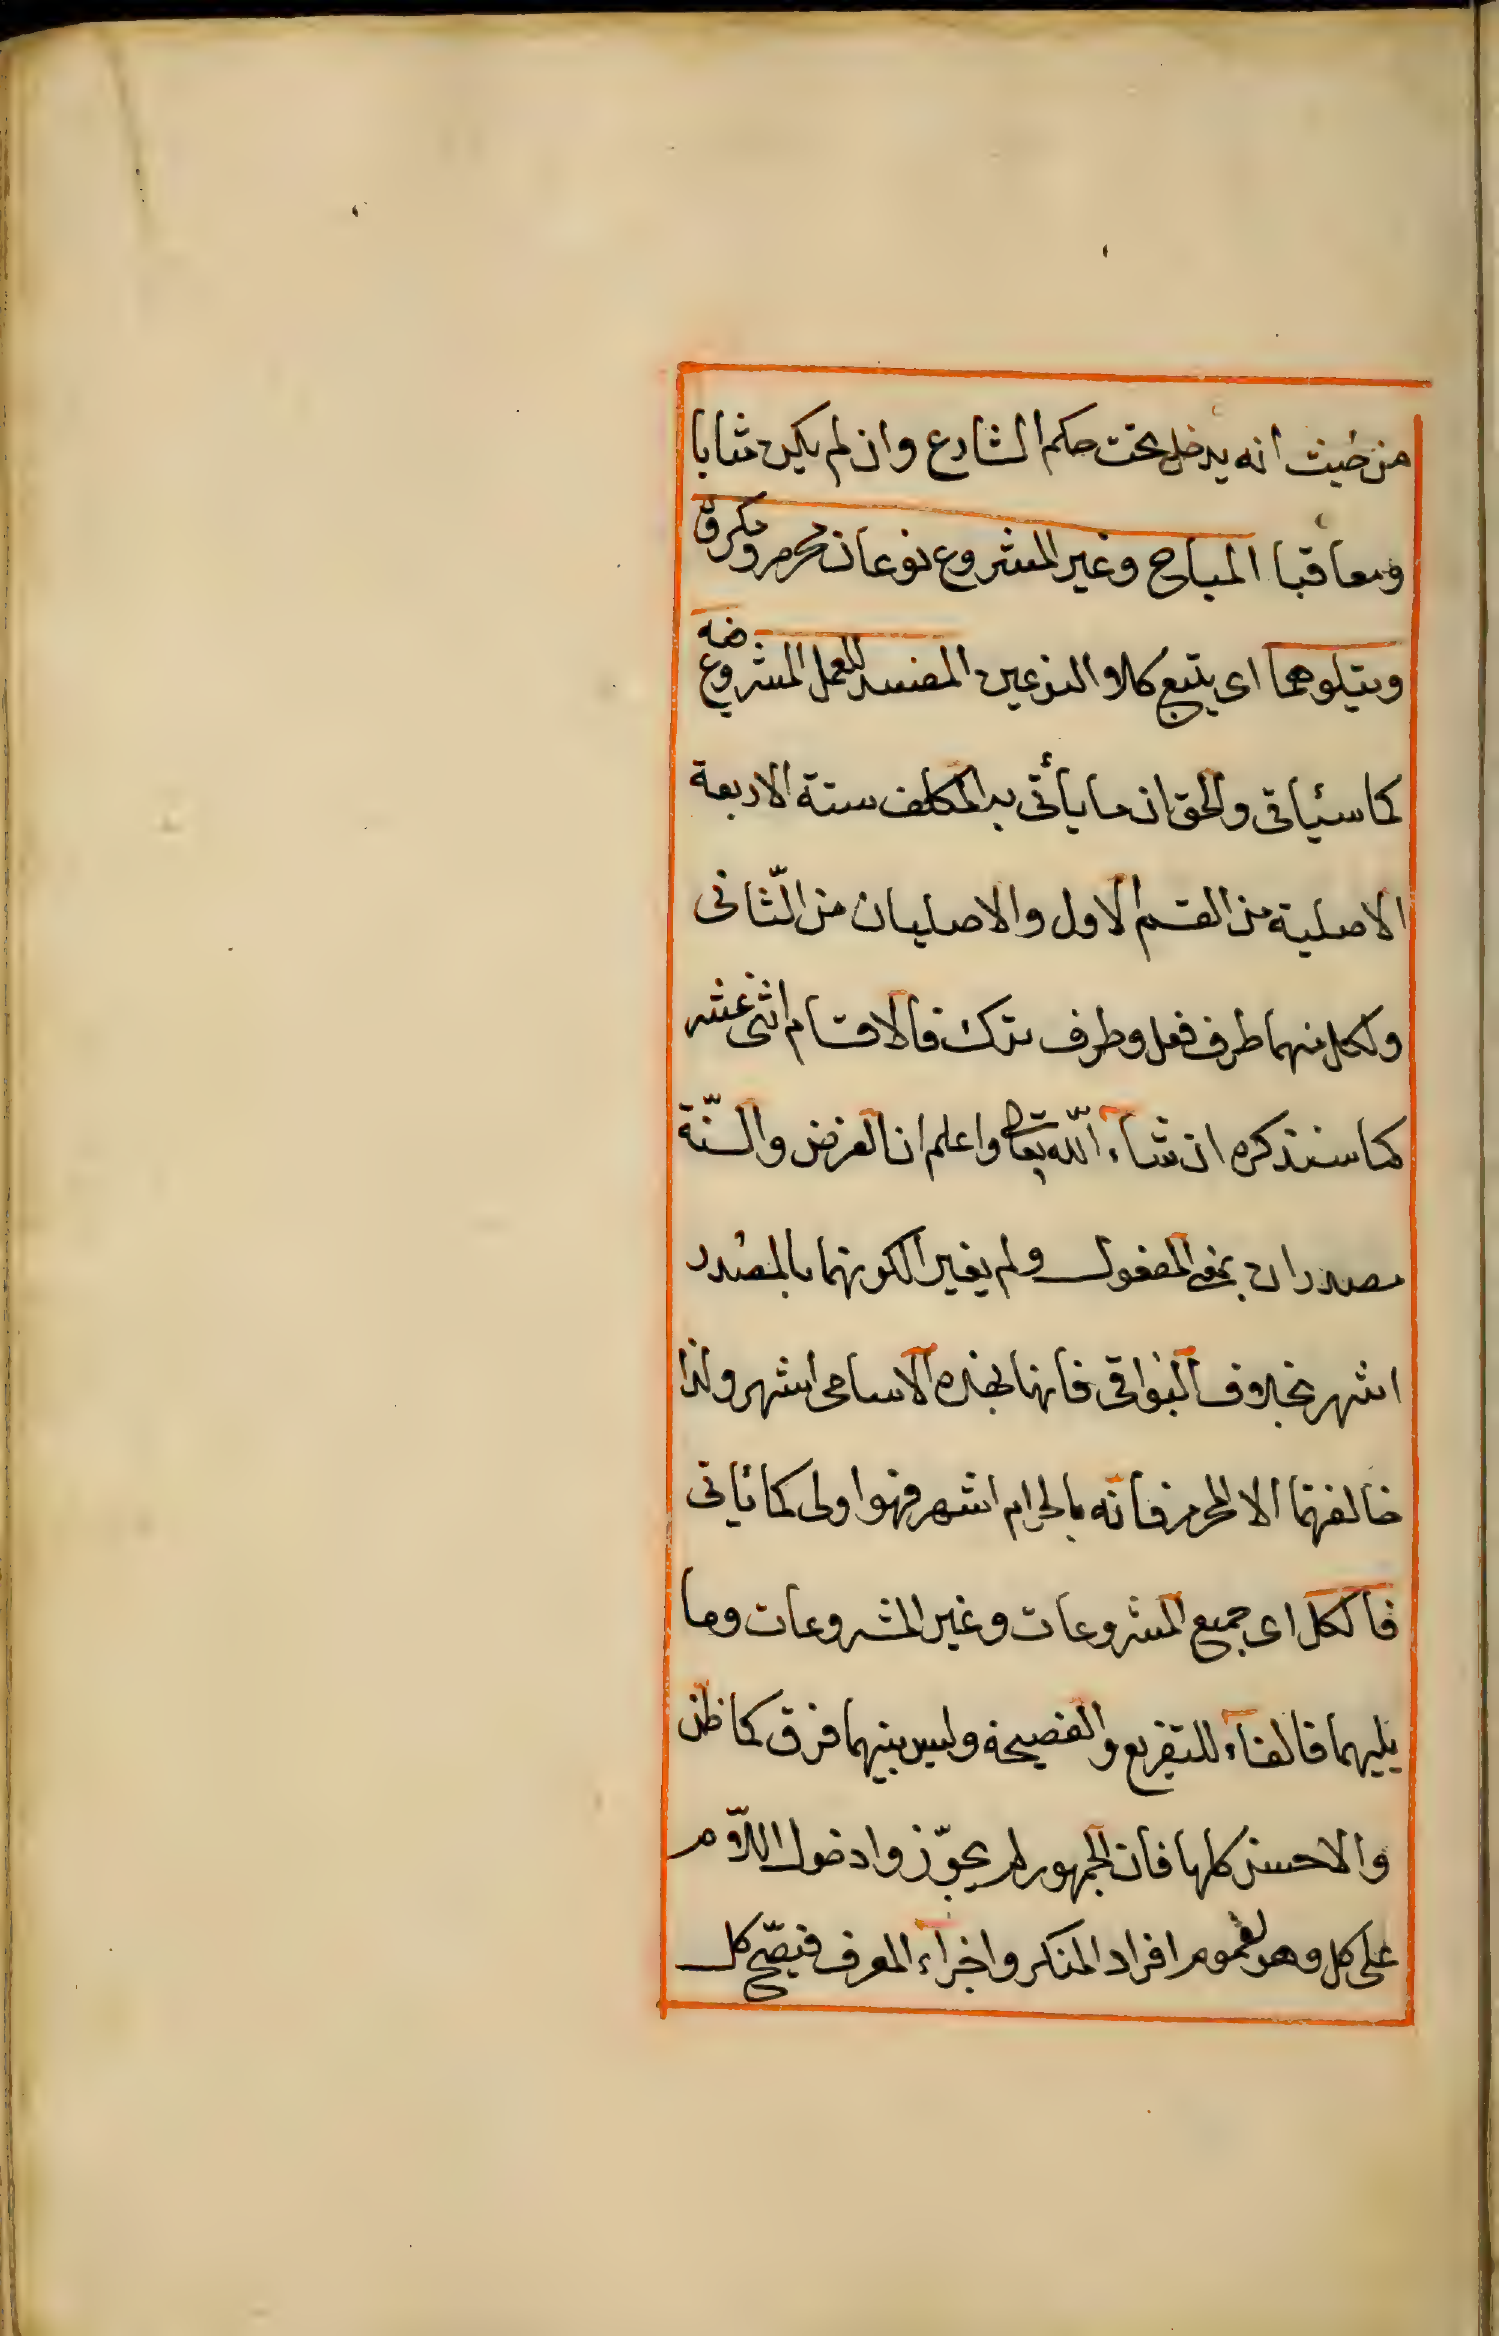 من حيث انه يدخل تحت حكم الشارع وان لم يكن مثابا
ومعاقبا المباح وغير المشروع نوعان محرم ومكروه
ويتلوهما اى يتبع كلا والنوعين المفسد للعمل المشروع فيه
كما سيأتى والحق ان ما يأتى به المكلف ستة الاربعة
الاصلية من القسم الاول والاصليان من الثّانى
ولكل منهما طرف فعل وطرف ترك فالاقسام اثنى عشر
كما سنذكره ان شآء اللّه تعالى واعلم ان الفرض والسّنّة
مصدران بمعنى المفعول ولم يغير الكونهما بالمصدر
اشهر بخلاف البواقى فانها بهذه الاسامى اشهر ولذا
خالفهما الا المحرم فانّه بالحرام اشهر فهو اولى كما يأتى
فالكل اى جميع المشروعات وغير المشروعات وما
يليهما فالفآء للتفريع والفصيحة وليس بينهما فرق كما ظن
والاحسن كلها فان الجمهور لم يجوّزوا دخول اللّام
على كل وهو لعموم افراد المنكر واجزآء المعرف فيصّح كل